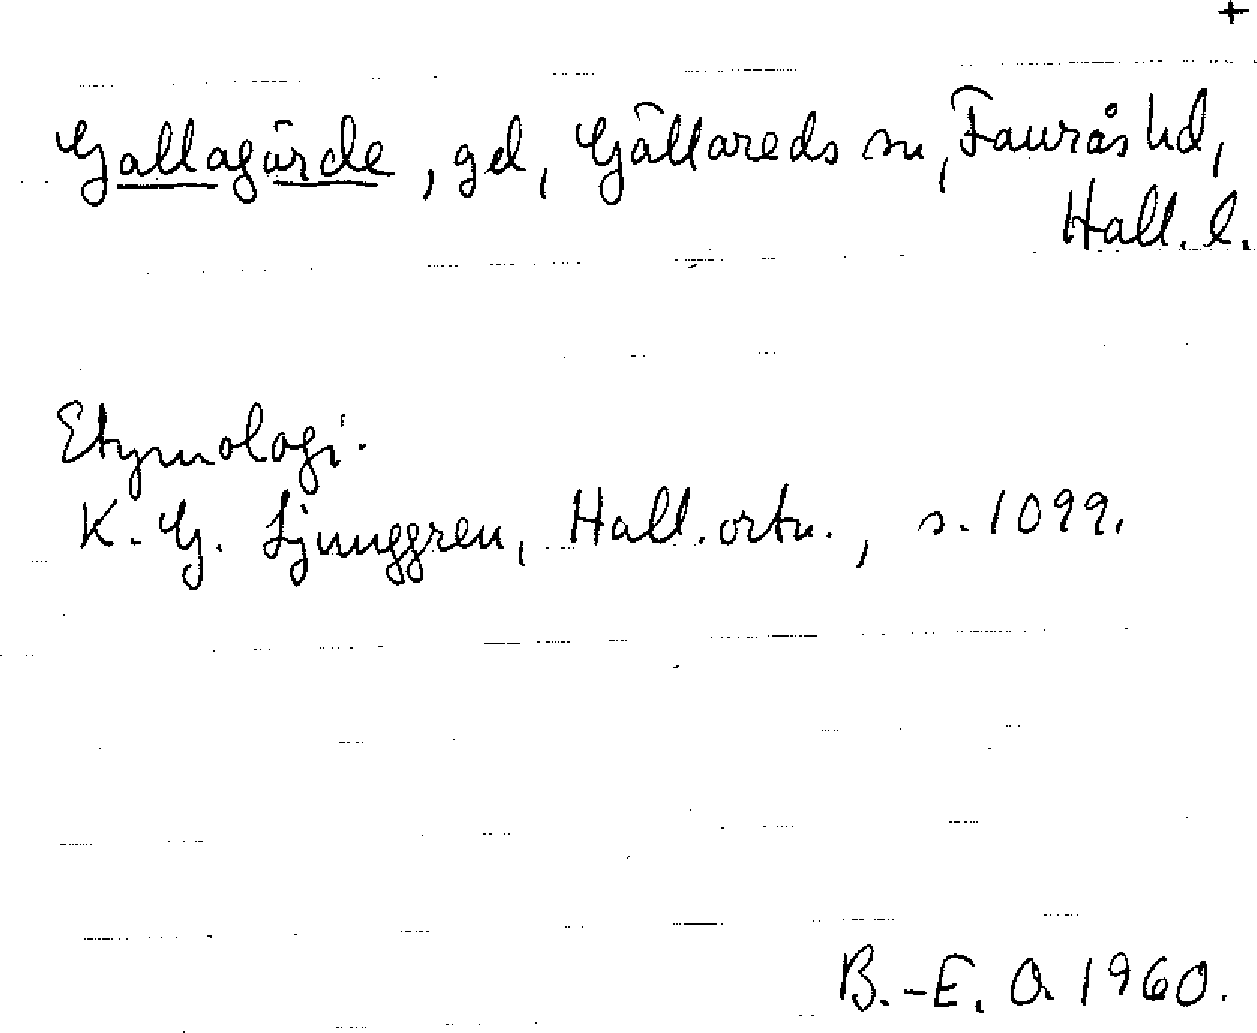 +
Gallagärde, gd, Gällareds sn, Faurås hd,
Hall. l.
Etymologi.
K. G. Ljunggren, Hall. ortn., s. 1099.
B.-E. O. 1960.